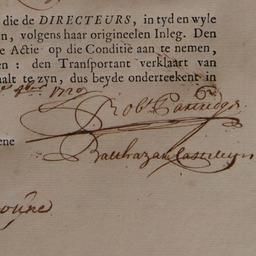 die de DIRECTEURS, in tyd en wyle
n, volgens haar origineelen Inleg. Den
e Actie op die Conditie aan te nemen,
en: den Transportant verklaart van
aalt te zyn, dus beyde onderteekent in
1720
Rob.t Partridge
ene
Balthazar Casteleyn